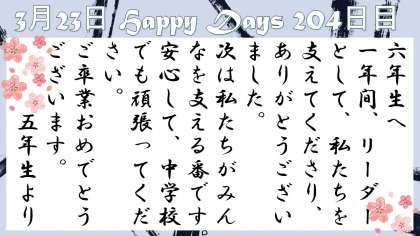 3月23日 Happy Days 204日目
六年生へ
一年間、リーダー
として、私たちを
支えてくださり、
ありがとうござい
ました。
次は私たちがみん
なを支える番です。
安心して、中学校
でも頑張ってくだ
さい。
ご卒業おめでとう
ございます。
五年生より